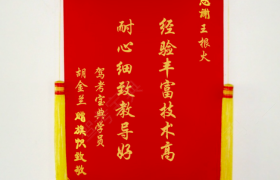 感谢王根火
经验丰富技术高
耐心细致教导好
驾考宝典学员
胡金兰赠旗致敬